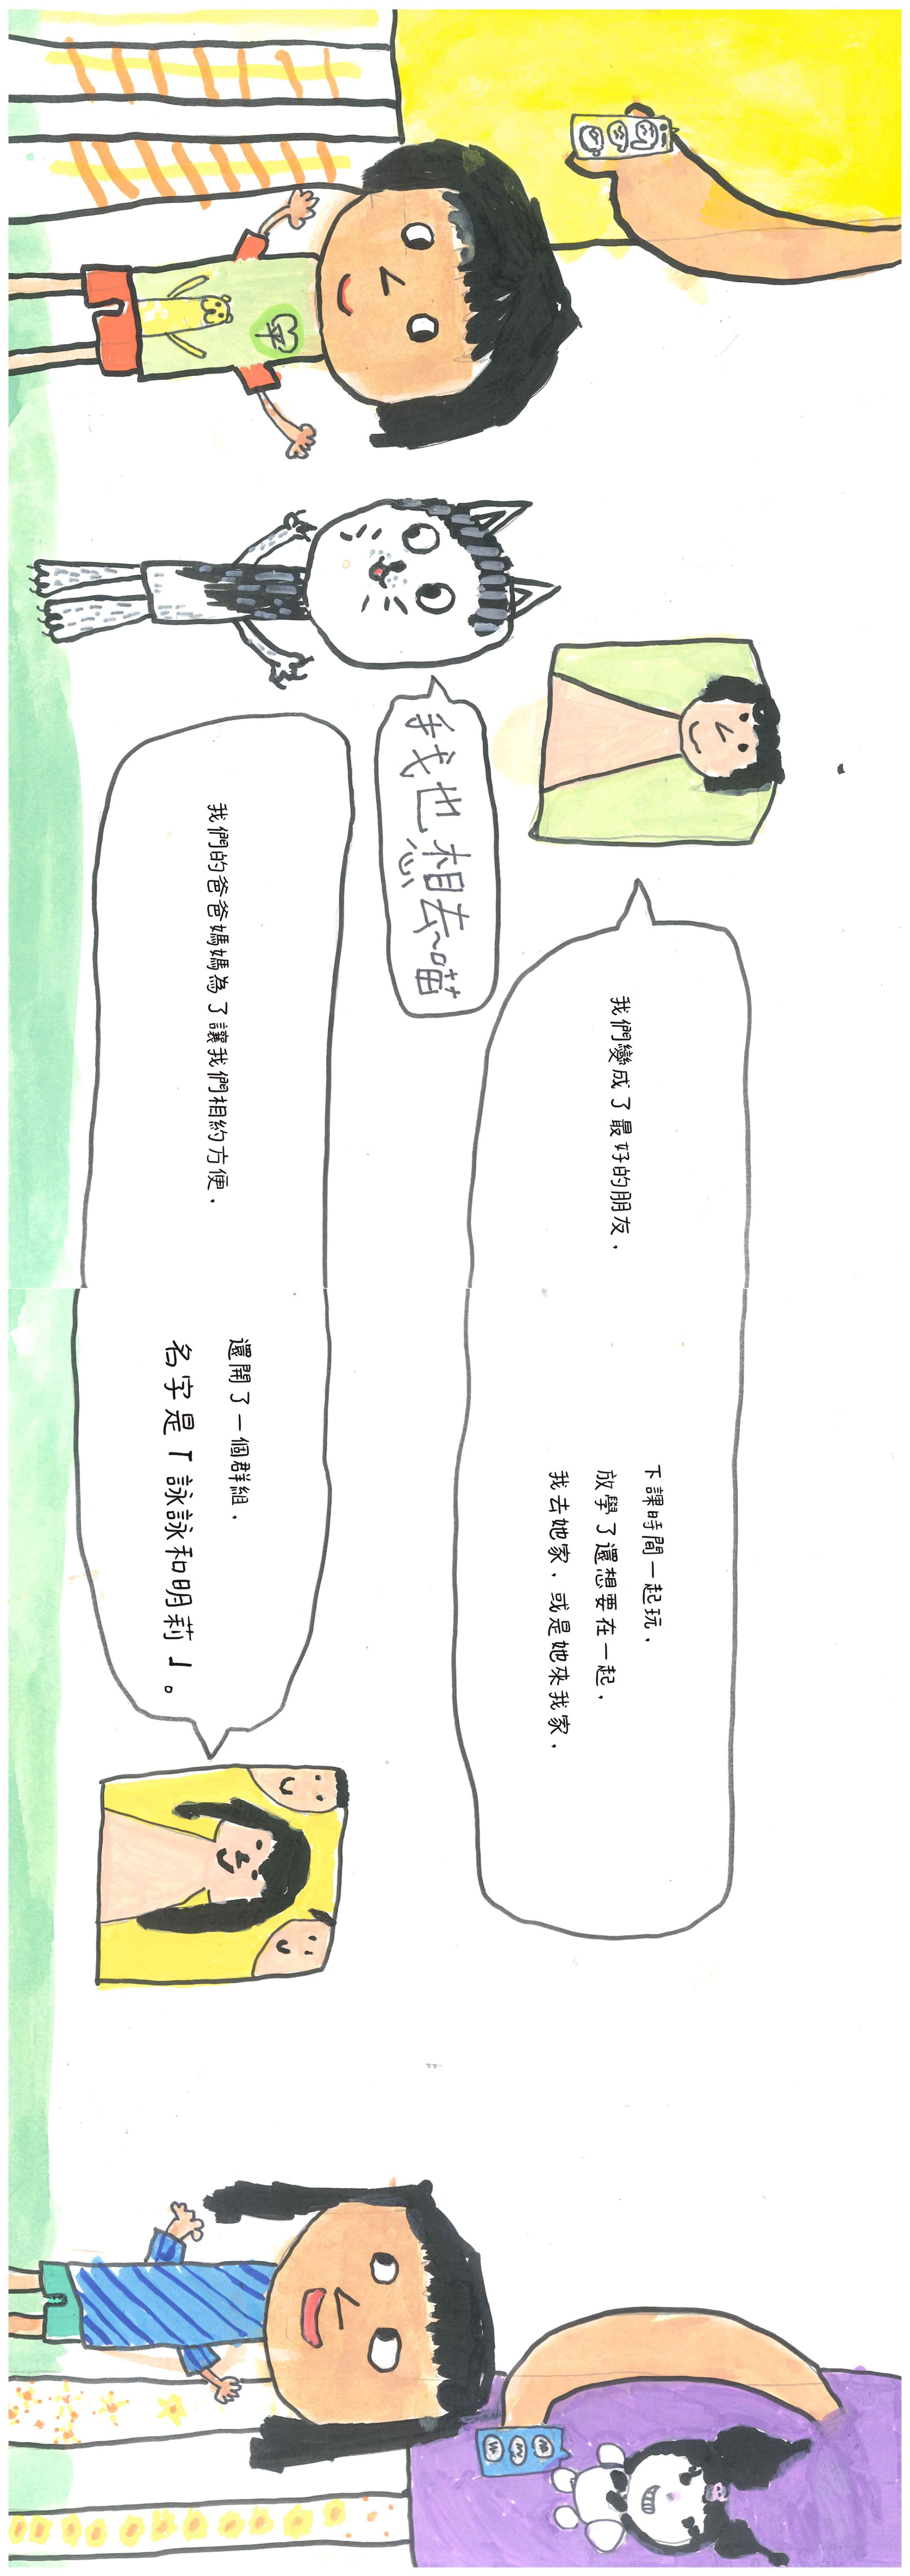 我們變成了最好的朋友，
下課時間一起玩，
放學了還想要在一起，
我去她家，或是她來我家，
我也想去~喵
我們的爸爸媽媽為了讓我們相約方便，
還開了一個群組，
名字是「詠詠和明莉」。